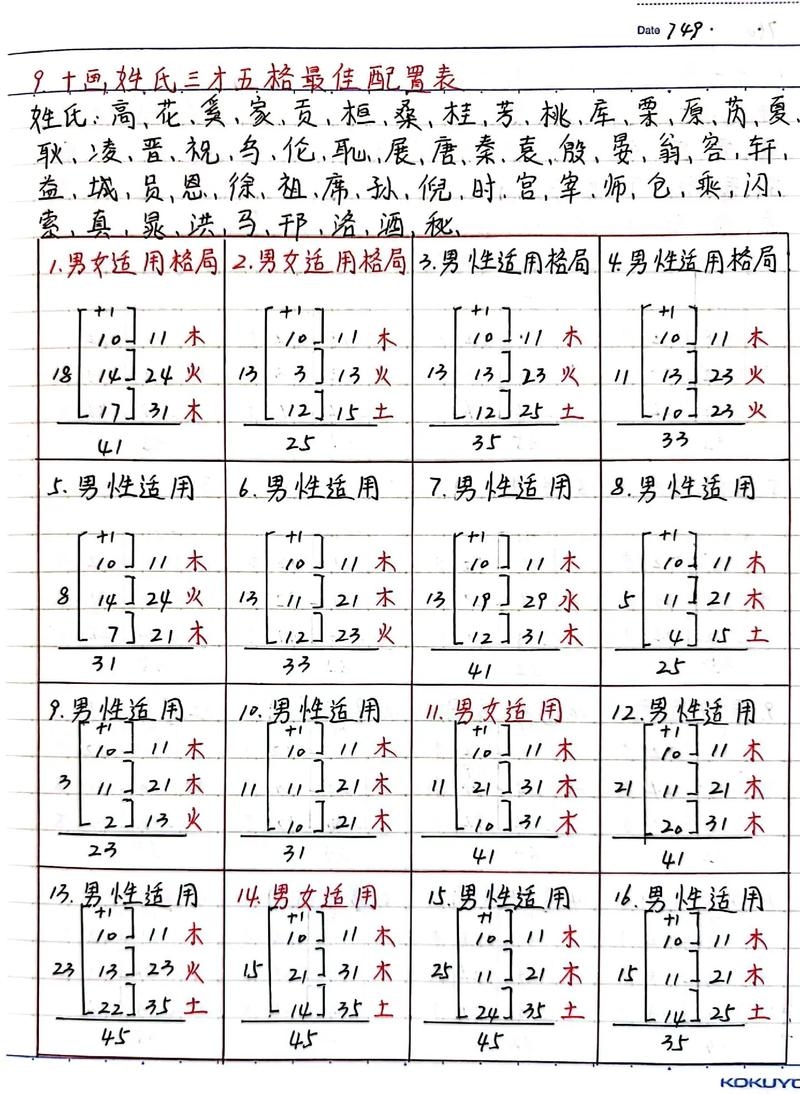 Date 749.
9. 十画姓氏三才五格最佳配置表
姓氏: 高、花、奚、家、贡、桓、桑、桂、芳、桃、库、栗、原、芮、夏、
耿、凌、晋、祝、乌、伦、耻、展、唐、秦、袁、殷、晏、翁、容、轩、
益、城、员、恩、徐、祖、席、孙、倪、时、宫、宰、师、仓、乘、闪、
索、真、晁、洪、马、邗、洛、洒、秘、
1.男女适用格局
+1
10 11 木
18 14 24 火
17 31 木
41
2.男女适用格局
+1
10 11 木
13 3 13 火
12 15 土
25
3.男性适用格局
+1
10 11 木
13 13 23 火
12 25 土
35
4.男性适用格局
+1
10 11 木
11 13 23 火
10 23 火
33
5.男性适用
+1
10 11 木
8 14 24 火
7 21 木
31
6.男性适用
+1
10 11 木
13 11 21 木
12 23 火
33
7.男性适用
+1
10 11 木
13 19 29 水
12 31 木
41
8.男性适用
+1
10 11 木
5 11 21 木
4 15 土
25
9.男性适用
+1
10 11 木
3 11 21 木
2 13 火
23
10.男性适用
+1
10 11 木
11 11 21 木
10 21 木
31
11.男女适用
+1
10 11 木
11 21 31 木
10 31 木
41
12.男性适用
+1
10 11 木
21 11 21 木
20 31 木
41
13.男性适用
+1
10 11 木
23 13 23 火
22 35 土
45
14.男女适用
+1
10 11 木
15 21 31 木
14 35 土
45
15.男性适用
+1
10 11 木
25 11 21 木
24 35 土
45
16.男性适用
+1
10 11 木
15 11 21 木
14 25 土
35
KOKUYO